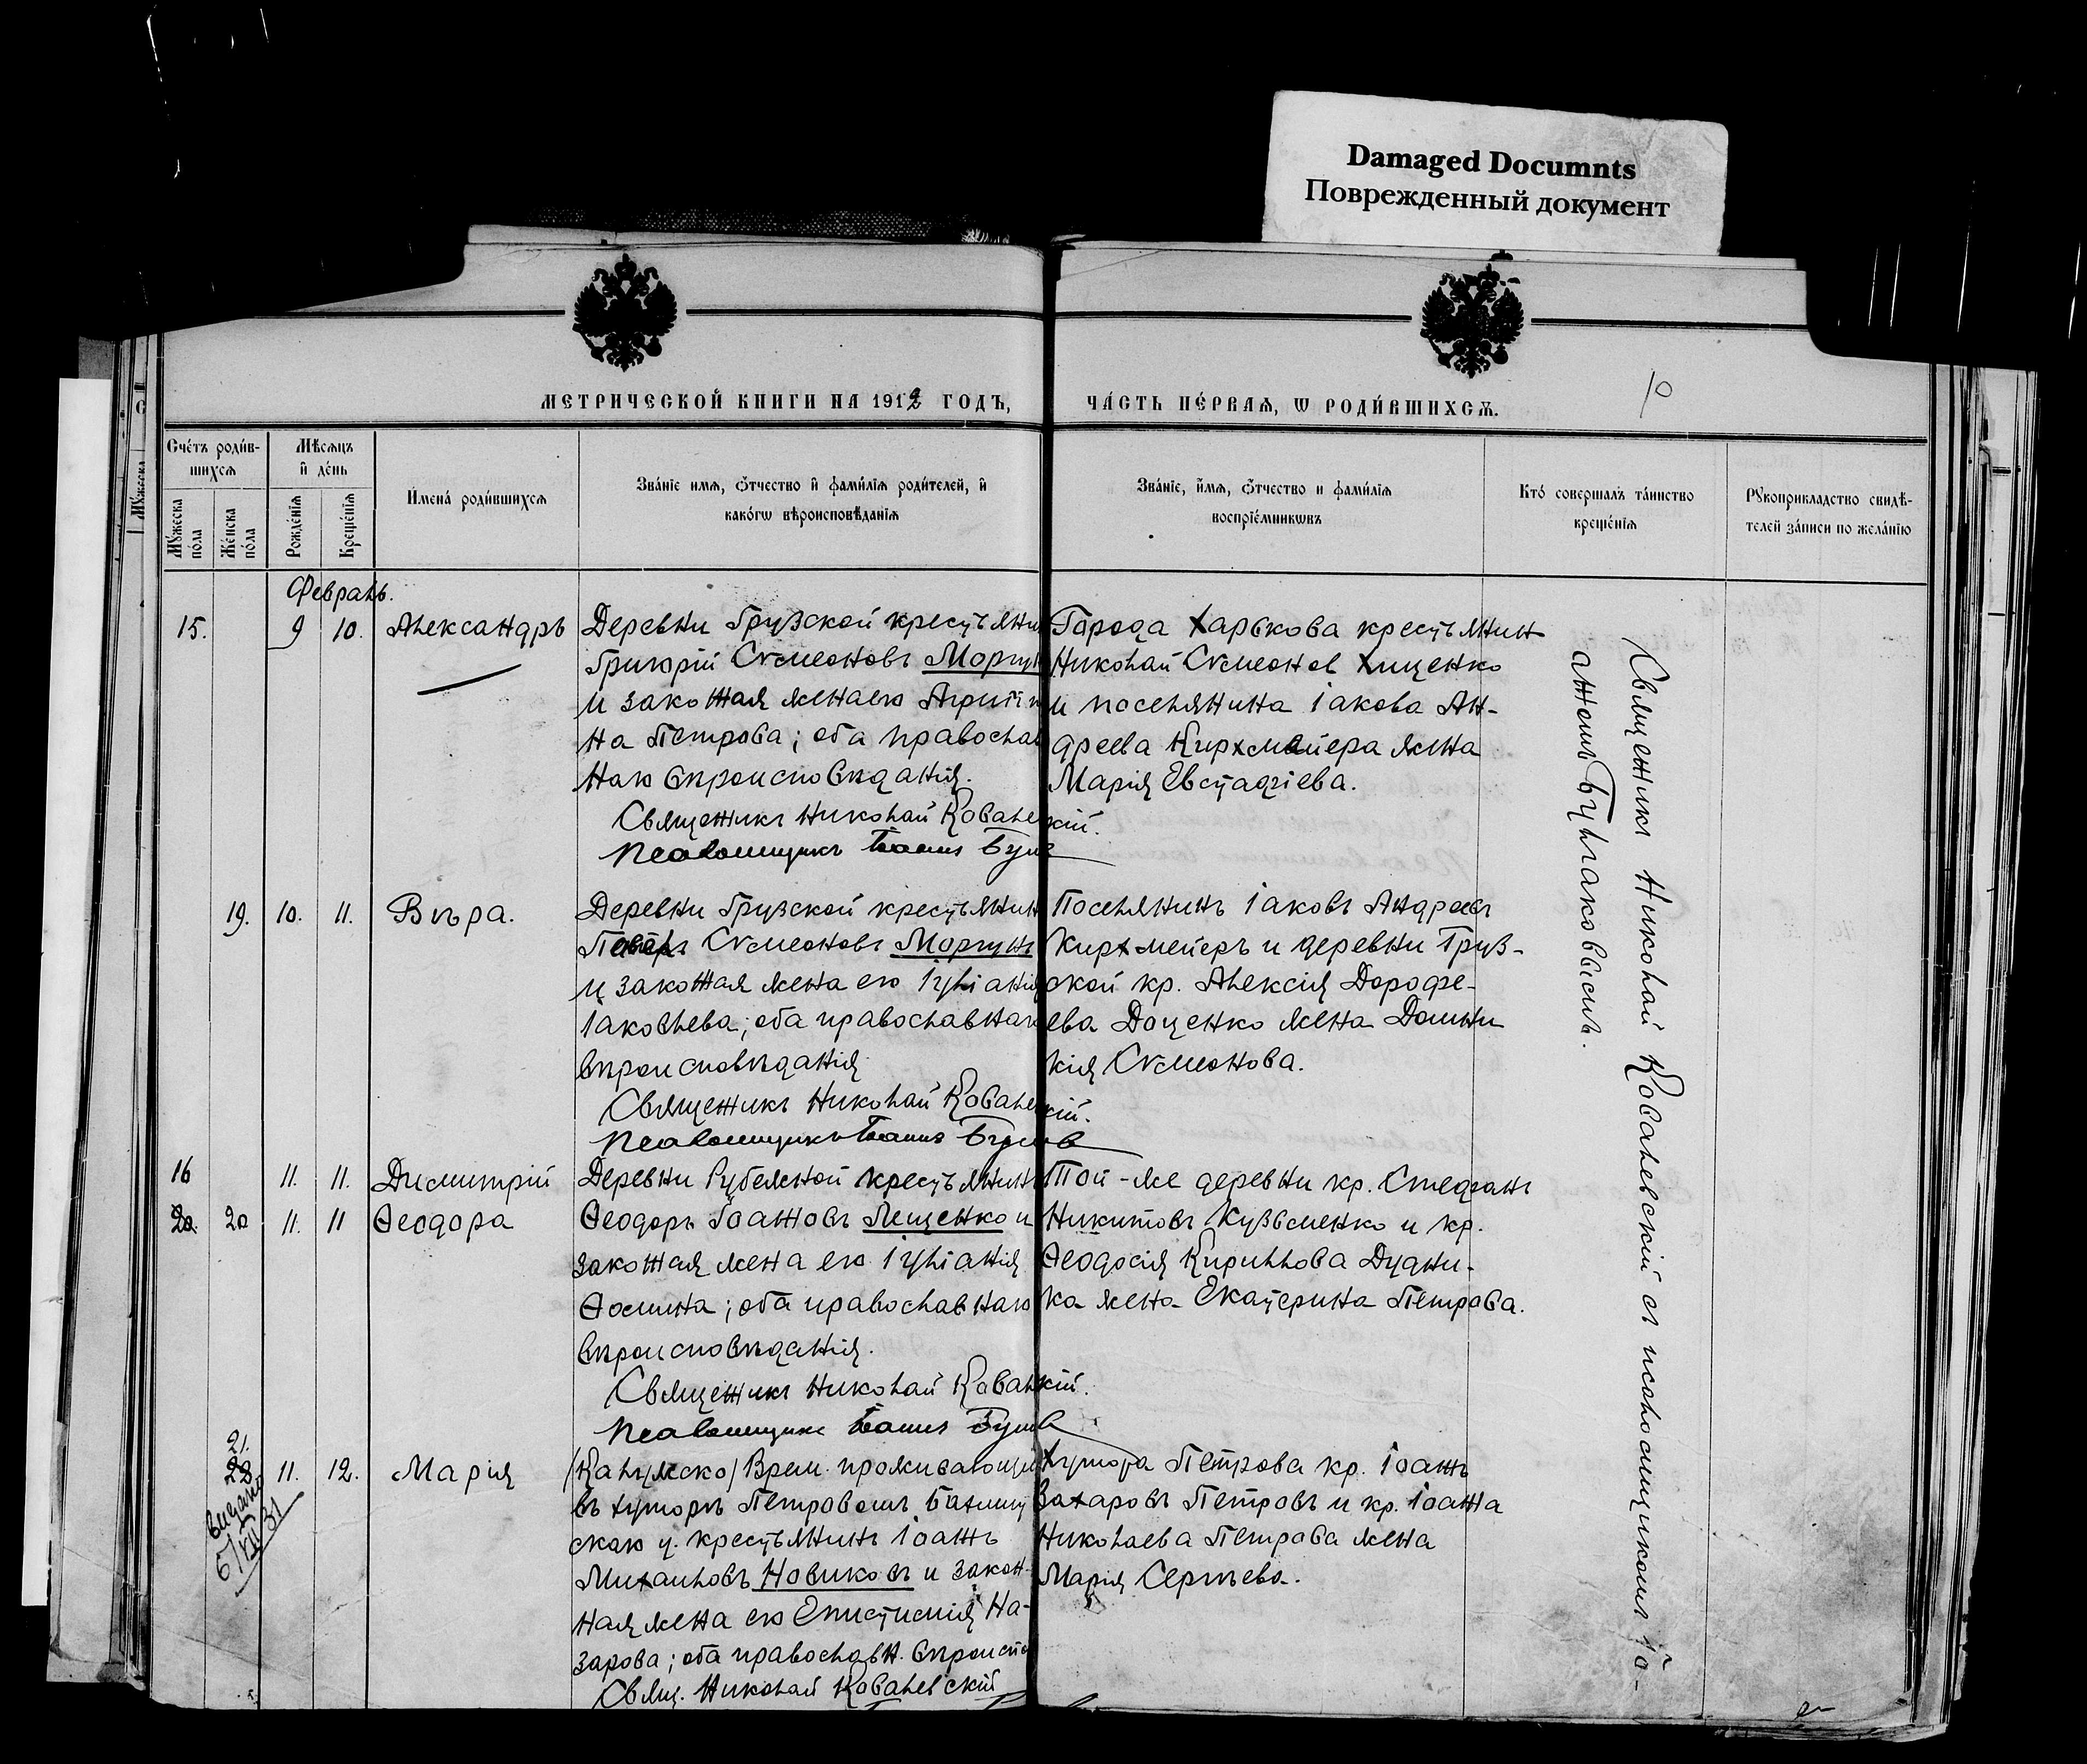 Damaged Documnts
Поврежденный документ
МЕТРИЧЕСКОЙ КНИГИ НА 1912 ГОДЪ,
ЧАСТЬ ПЕРВАѦ, Ѡ РОДИВШИХСѦ.
10
Счетъ родив-
шихсѧ
Мѣсѧцъ
и день
Мужеска
пола
Женска
пола
Рожденіѧ
Крещеніѧ
Имена родившихсѧ
Званіе имѧ, ѻтчество и фамиліѧ родителей, и
какогѡ вѣроисповѣданіѧ
Званіе, имѧ, ѻтчество и фамиліѧ
воспріемникѡвъ
Кто совершалъ таинство
крещеніѧ
Рукоприкладство свидѣ-
телей записи по желанію
Февраль.
15. 9 10. Александръ
Деревни Грузской крестьянин
Григорій Сѵмеоновъ Моргун
и законная жена его Агрипи
на Петрова; оба православ
наго вѣроисповѣданія.
Священникъ Николай Ковалев
Псаломщикъ Іоаннъ Булг
Города Харькова крестьянин
Николай Сѵмеонов Хищенко
и поселянина Іакова Ан-
дреева Кирхмейера жена
Марія Евстафіева.
кій.
19. 10. 11. Вѣра.
Деревни Грузской крестьянин
Сѵмеоновъ Моргунъ
и законная жена его Іуліанія
Іаковлева; оба православнаго
вѣроисповѣданія
Священникъ Николай Ковалев
Псаломщикъ Іоаннъ
Поселянинъ Іаковъ Андреевъ
Кирхмейеръ и деревни Груз-
ской кр. Алексія Дорофе-
ева Доценко жена Домни
кія Сѵмеонова.
кій.
16 11. 11. Димитрій
20. 20 11. 11 Ѳеодора
Деревни Рубежной крестьянинъ
Ѳеодоръ Іоанновъ Лещенко и
законная жена его Іуліанія
Ѳомина; оба православнаго
вѣроисповѣданія.
Священникъ Николай Ковал
Псаломщикъ Іоаннъ
Той-же деревни кр. Стефанъ
Никитовъ Кузьменко и кр.
Ѳеодосія Кириллова Дудни-
ка жена Екатерина Петрова.
кій.
21.
22. 11. 12. Марія
выдано
5/XII 31
Врем. проживающій
въ хуторѣ Петровомъ Бахмут
скаго у. крестьянинъ Іоаннъ
Михаиловъ Новиковъ и закон-
ная жена его Епистимія На-
зарова; оба православн. вѣроиспо
Свящ. Николай Ковалевскій
Хутора Петрова кр. Іоаннъ
Захаровъ Петровъ и кр. Іоанна
Николаева Петрова жена
Марія Сергѣева.
Священникъ Николай Ковалевскій съ псаломщикомъ Іо-
анномъ Булгаковымъ.